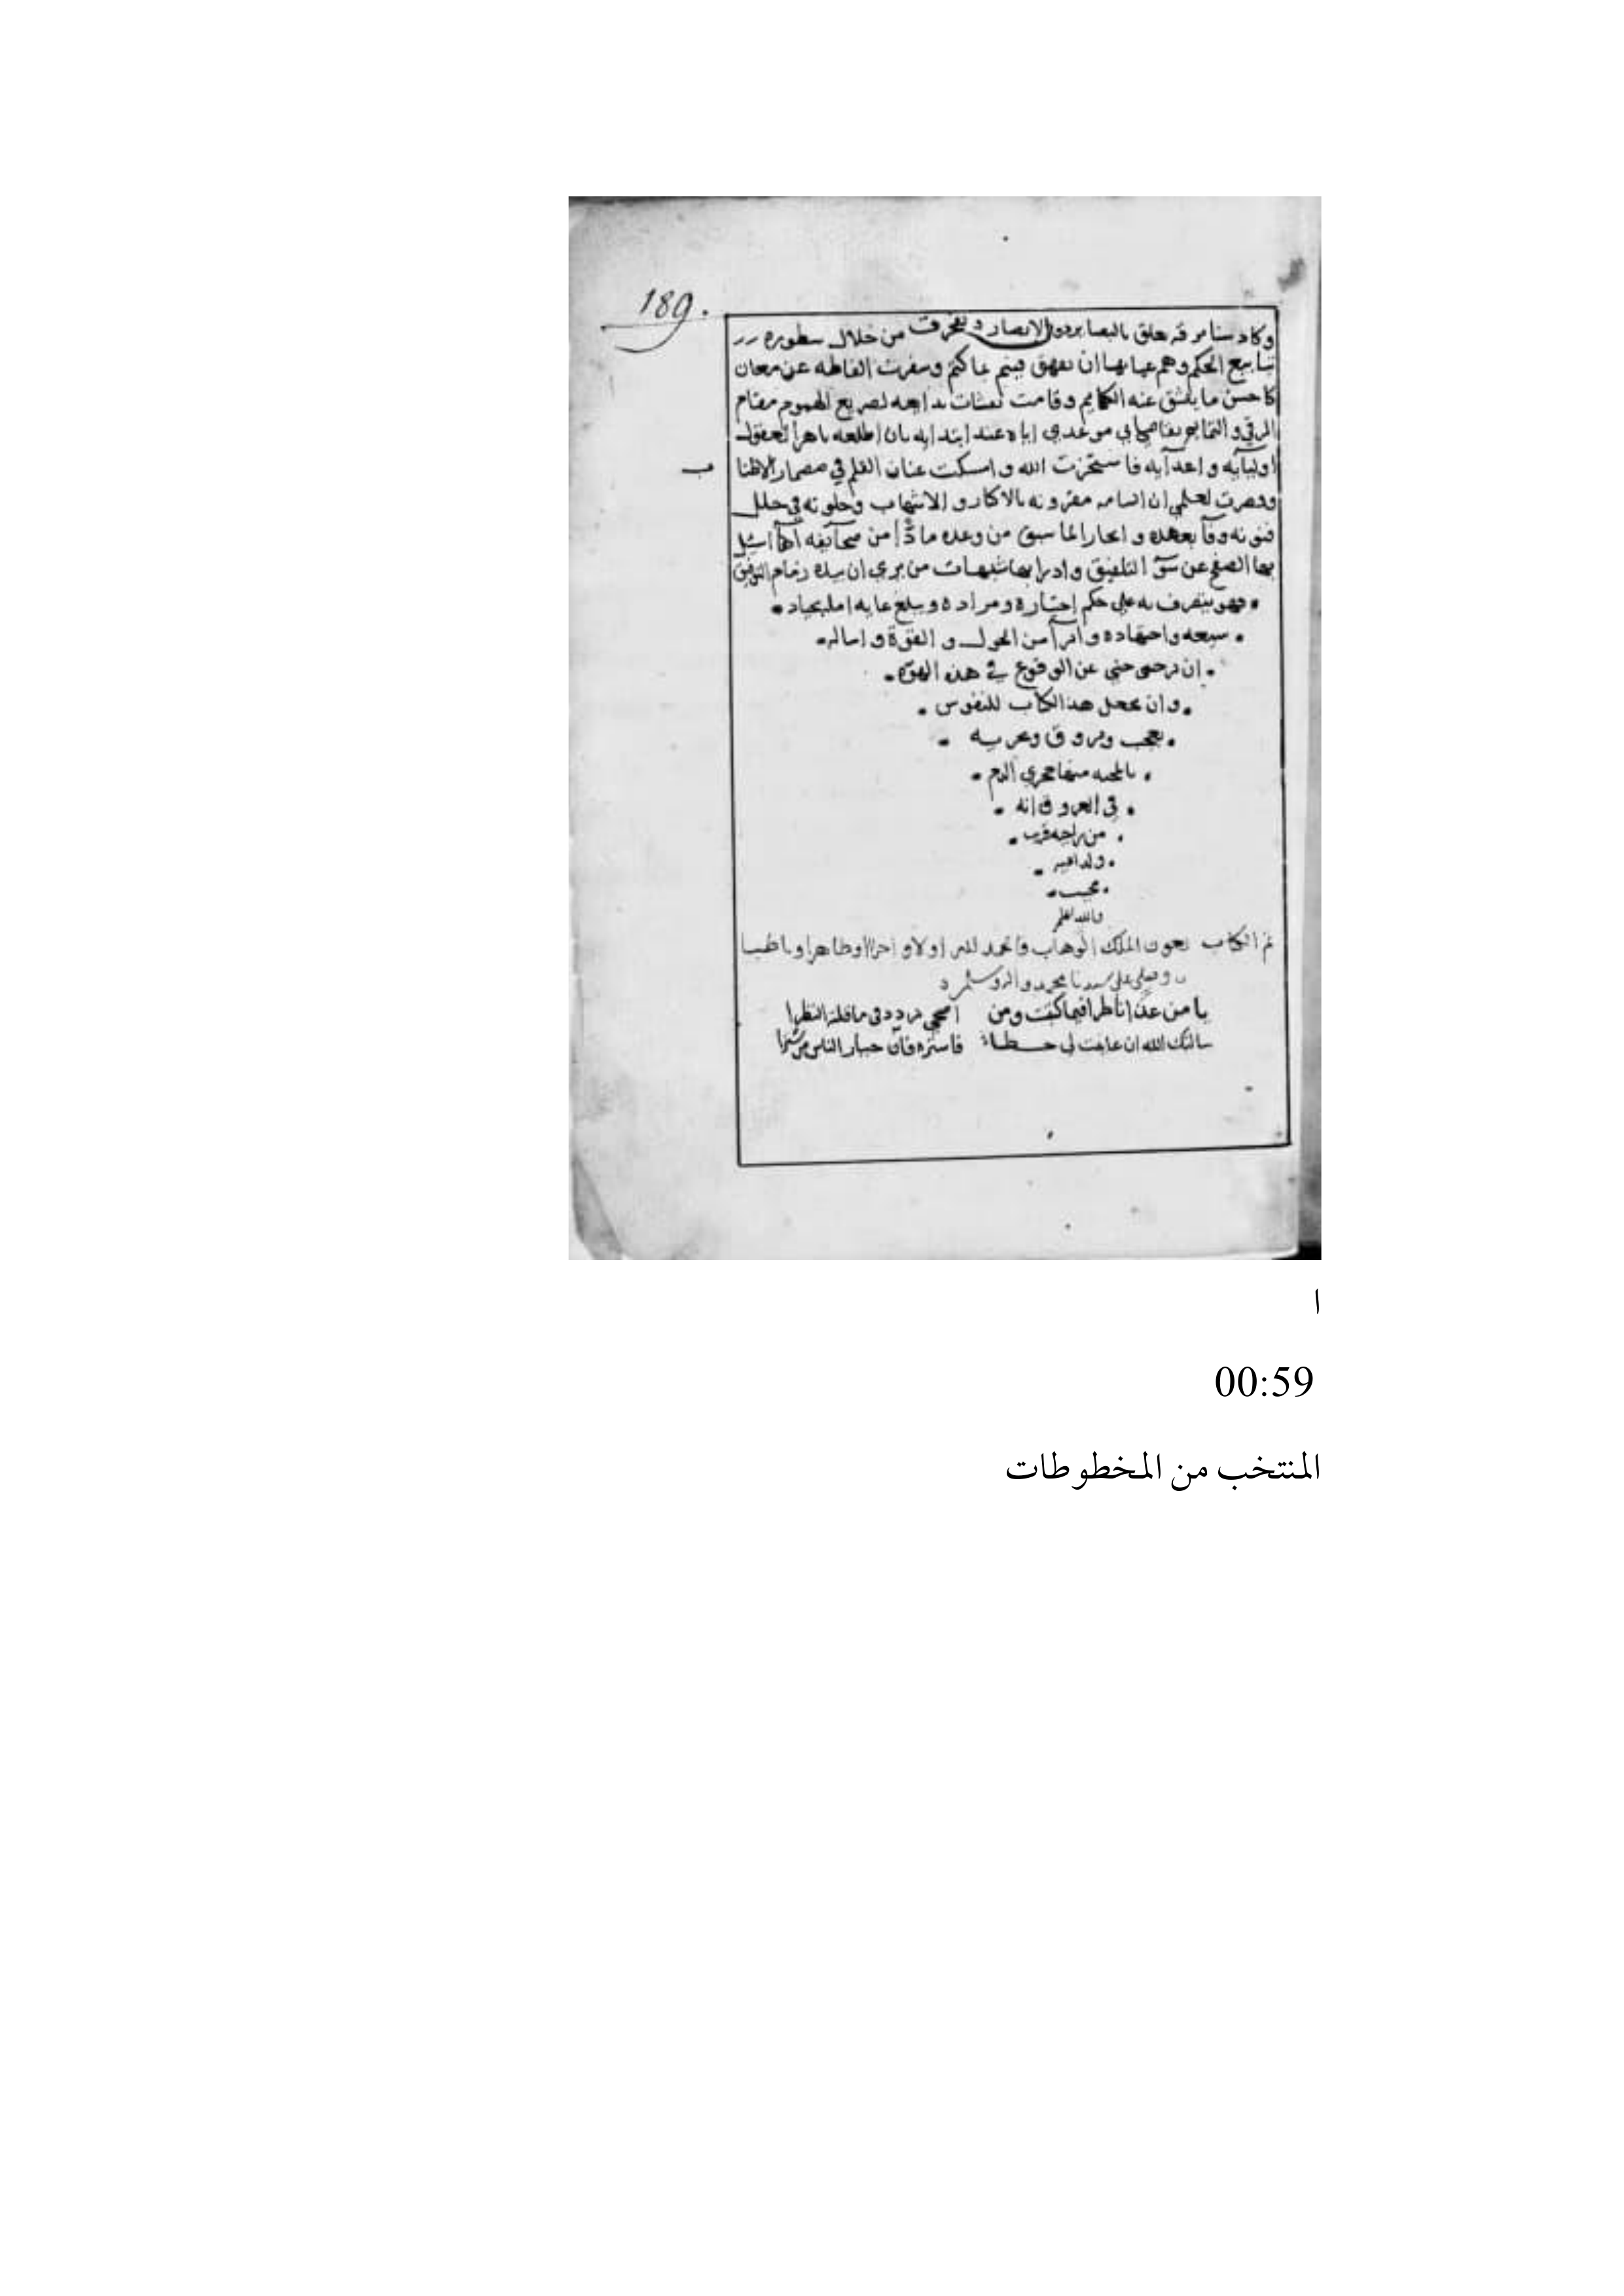 189.
وكاد سنا برقه يعلق بالبصاير دون الابصار وتفجرت من خلال سطوره
ينابيع الحكم وهم عبابها ان يفهق فينم بما كتم وسفرت الفاظه عن معان
كاحسن ما ينشق عنه الكمايم وقامت نفثات بدايعه لصريع الهموم مقام
الرقي والتمايم تقاضاني موعدي اياه عند ابتدايه بان اطلعه باهرا لعقول
اوليآيه واعدآيه فاستخرت الله وامسكت عنان القلم في مضمار الاطنا
ب
وقصرت لعلمي ان السامه مقرونه بالاكثار والاسهاب وجلوته في حلل
فنونه وفآ بعهده وانجازا لما سبق من وعده مادا من صحآيفه اكفآ اسيل
بها الصفح عن سوّ التلفيق وادرا بها شبهات من يري ان بيده زمام التوفيق
فهو يتصرف به علي حكم اختياره ومراده ويبلغ غايه امله بجياد
سعيه واجتهاده وابرآ من الحول و القوة واساله
ان يزحزحني عن الوقوع في هذه الهوه
وان يجعل هذا الكتاب للنفوس
يعجب ويروق ويجريه
بالمحبه منها مجري الدم
في العروق انه
من راجيه قريب
ولداعيه
مجيب
والله اعلم
تم الكتاب بعون الملك الوهاب فالحمد لله اولا واخرا وظاهرا وباطنا
وصلى على سيدنا محمد واله وسلم
يا من غدا ناظرا فيما كتبت ومن اضحي يردد في ما قلته النظرا
سالتك الله ان عاينت لي خطاء فاستره فان خيار الناس من سترا
ا
00:59
المنتخب من المخطوطات